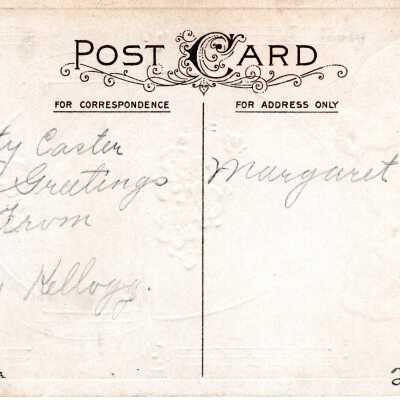 POST CARD
FOR CORRESPONDENCE
FOR ADDRESS ONLY
ty Easter
Greetings
From
Kellogg.
Margaret
2